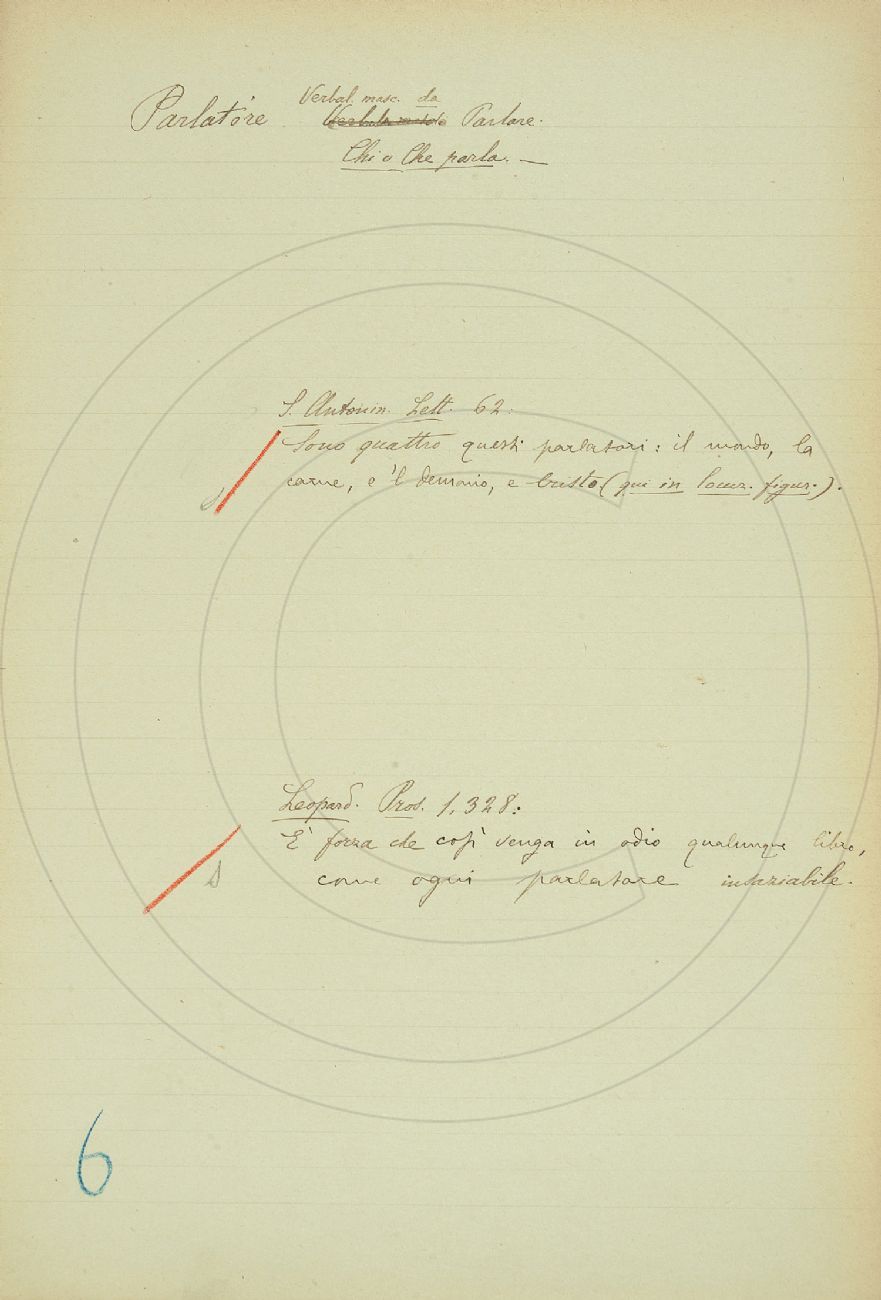 Parlatóre Verbal. masc. da Parlare.
Chi o Che parla. —
S. Antonin. Lett. 62:
Sono quattro questi parlatori: il mondo, la
carne, e 'l demonio, e Cristo (qui in locuz. figur.).
S
Leopard. Pros. 1, 328:
E' forza che così venga in odio qualunque libro,
come ogni parlatore insaziabile.
S
6